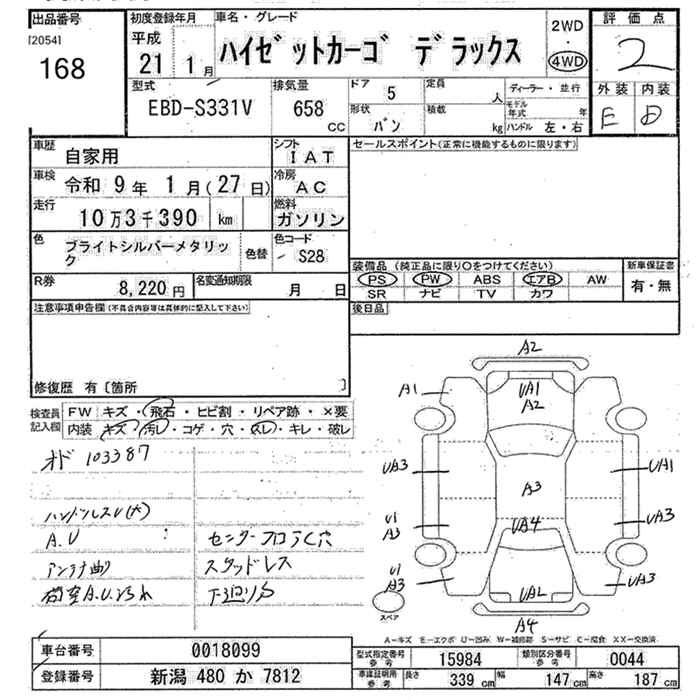 出品番号
[2054]
168
初度登録年月
平成
21 1月
車名・グレード
ハイゼットカーゴ デラックス
2WD
・
4WD
評価点
2
型式
EBD-S331V
排気量
658
CC
ドア 5
形状 バン
定員 人
積載 kg
ディーラー・並行
モデル年式 年
ハンドル 左・右
外装 内装
E D
車歴 自家用
シフト IAT
車検 令和 9年 1月(27日)
冷房 AC
走行 10万3千390 km
燃料 ガソリン
色 ブライトシルバーメタリック
色替
色コード S28
R券 8,220円
名変通知期限 月 日
セールスポイント(正常に機能するものに限ります)
装備品 (純正品に限り○をつけてください)
PS PW ABS エアB AW
SR ナビ TV カワ
新車保証書
有・無
後日品
注意事項申告欄(不具合内容等は具体的に記入して下さい)
修復歴 有〔箇所 〕
検査員記入欄
FW キズ・飛石・ヒビ割・リペア跡・×要
内装 キズ・汚れ・コゲ・穴・スレ・キレ・破レ
オド 103387
ハンドルスレ(大)
A.U
アンテナ曲
荷室A.U
センターフロアく穴
スタッドレス
下廻りS
A2
A1
UA1
A2
UA3
UA1
A3
U1
A3
UA4
UA3
U1
A3
UA2
UA3
A4
スペア
A-キズ E-エクボ U-凹み W-補修跡 S-サビ C-腐食 XX-交換済
車台番号 0018099
登録番号 新潟 480 か 7812
型式指定番号 参考 15984
類別区分番号 参考 0044
車庫証明用 参考 長さ 339cm 幅 147cm 高さ 187cm